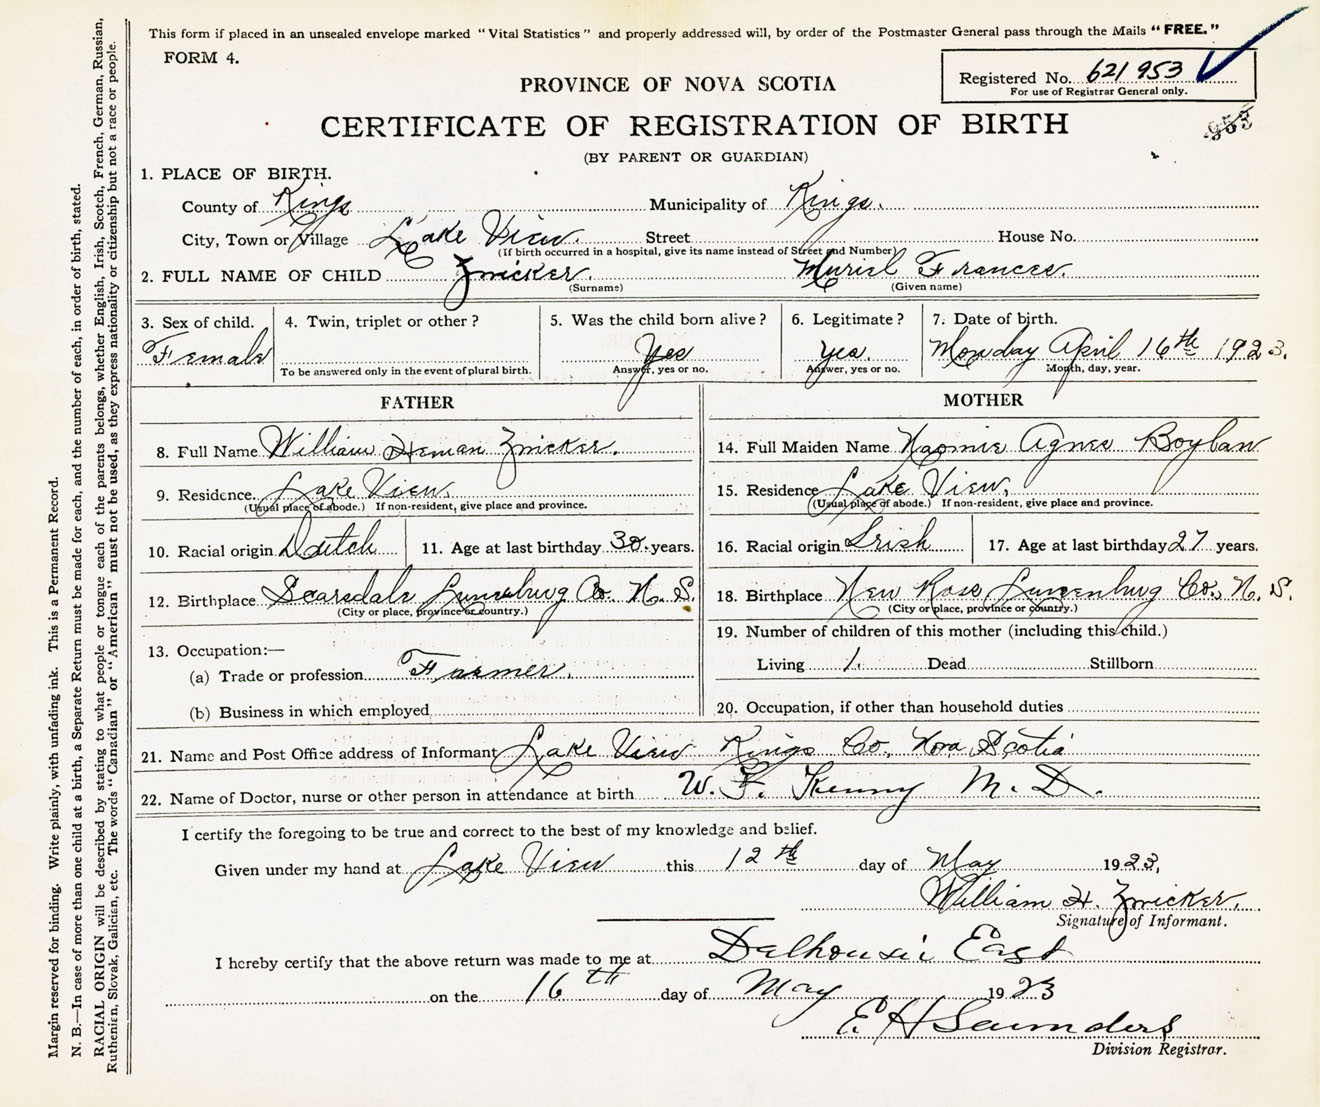 This form if placed in an unsealed envelope marked "Vital Statistics" and properly addressed will, by order of the Postmaster General pass through the Mails "FREE."
FORM 4.
Registered No. 621953
For use of Registrar General only.
953
PROVINCE OF NOVA SCOTIA
CERTIFICATE OF REGISTRATION OF BIRTH
(BY PARENT OR GUARDIAN)
1. PLACE OF BIRTH.
County of Kings Municipality of Kings.
City, Town or Village Lake View. Street House No.
(If birth occurred in a hospital, give its name instead of Street and Number)
2. FULL NAME OF CHILD Zwicker. Muriel Frances.
(Surname) (Given name)
3. Sex of child. 4. Twin, triplet or other? 5. Was the child born alive? 6. Legitimate? 7. Date of birth.
Female Yes Yes. Monday April 16th 1923.
To be answered only in the event of plural birth. Answer, yes or no. Answer, yes or no. Month, day, year.
FATHER MOTHER
8. Full Name William Heman Zwicker. 14. Full Maiden Name Naomie Agnes Boylan
9. Residence. Lake View. 15. Residence Lake View.
(Usual place of abode.) If non-resident, give place and province. (Usual place of abode.) If non-resident, give place and province.
10. Racial origin Dutch 11. Age at last birthday 30. years. 16. Racial origin Irish 17. Age at last birthday 27 years.
12. Birthplace Scarsdale Lunenburg Co. N. S. 18. Birthplace New Ross Lunenburg Co. N. S.
(City or place, province or country.) (City or place, province or country.)
13. Occupation:— 19. Number of children of this mother (including this child.)
(a) Trade or profession Farmer. Living 1. Dead Stillborn
(b) Business in which employed 20. Occupation, if other than household duties
21. Name and Post Office address of Informant Lake View Kings Co. Nova Scotia
22. Name of Doctor, nurse or other person in attendance at birth W. F. Kenny M. D.
I certify the foregoing to be true and correct to the best of my knowledge and belief.
Given under my hand at Lake View this 12th day of May 1923,
William H. Zwicker.
Signature of Informant.
I hereby certify that the above return was made to me at Dalhousie East
on the 16th day of May 1923
E. H Saunders
Division Registrar.
Margin reserved for binding. Write plainly, with unfading ink. This is a Permanent Record.
N. B.—In case of more than one child at a birth, a Separate Return must be made for each, and the number of each, in order of birth, stated.
RACIAL ORIGIN will be described by stating to what people or tongue each of the parents belongs, whether English, Irish, Scotch, French, German, Russian,
Ruthenien, Slovak, Galician, etc. The words "Canadian" or "American" must not be used, as they express nationality or citizenship but not a race or people.